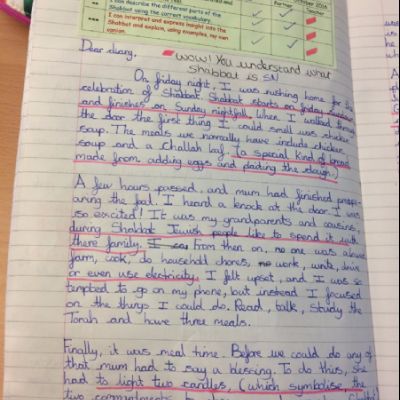 I can describe the different parts of the
Shabbat using the correct vocabulary.
I can interpret and express insight into the
Shabbat and explain, using examples, my own
Partner
October 2016
Dear diary,
wow! You understand what
Shabbat is SN
On friday night, I was rushing home for the
celebration of Shabbat. Shabbat starts on friday
and finishes on Sunday nightfall. When I walked through
the door the first thing I could smell was chicken
soup. The meals we normally have include chicken
soup and a challah loaf. (a special kind of bread
made from adding eggs and plaiting the dough.)
A few hours passed, and mum had finished prep-
aring the food. I heard a knock at the door. I was
so excited! It was my grandparents and cousins,
during Shabbat Jewish people like to spend it with
there family. from then on, no one was allowed
farm, cook, do household chores, work, write, drive
or even use electricity. I felt upset, and I was so
tempted to go on my phone, but instead I focused
on the things I could do. Read, talk, study the
Torah and have three meals.
Finally, it was meal time. Before we could do any of
that mum had to say a blessing. To do this, she
had to light two candles, (which symbolise the
two commandments